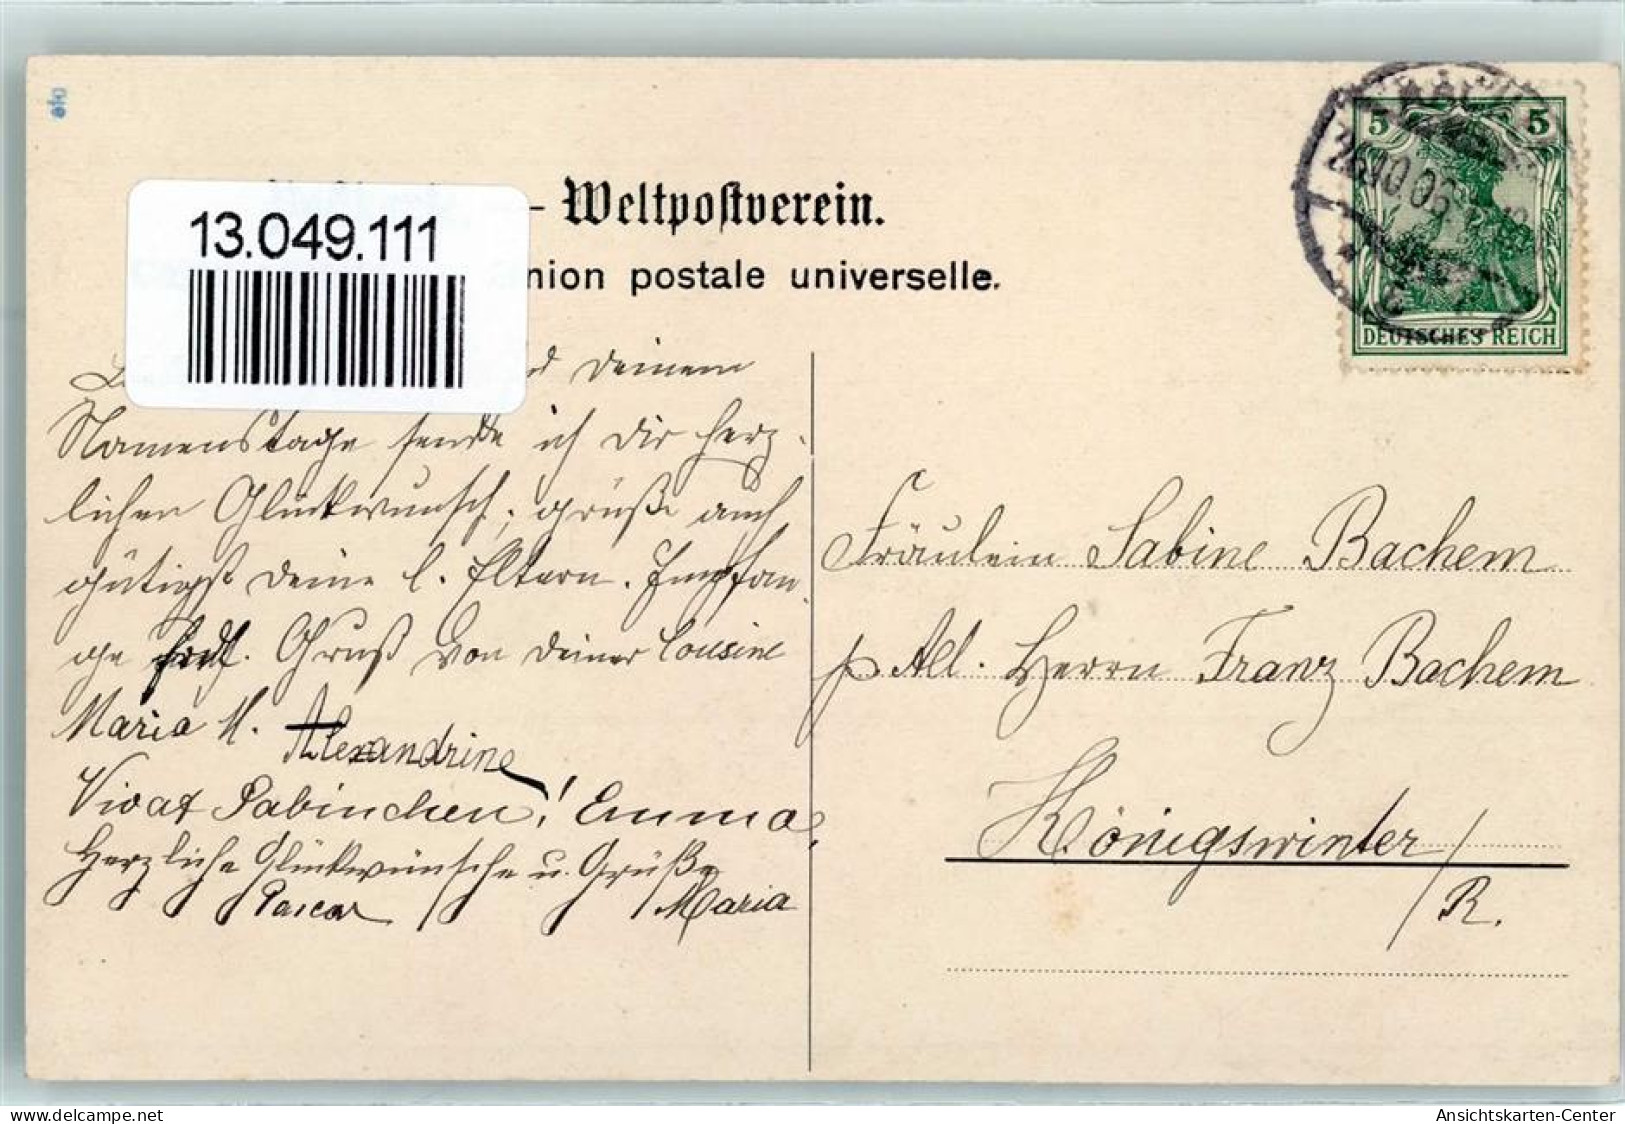 13.049.111
- Weltpostverein.
nion postale universelle.
5 5
26.10.06
DEUTSCHES REICH
deinem
Namenstage sende ich dir herz-
lichen Glückwunsch; grüße auch
gütigst deine l. Eltern. Empfan-
ge herzl. Gruß von deiner Cousine
Maria H. Alexandrine
Vivat Sabinchen! Emma
Herzliche Glückwünsche u. Grüße
Maria
Fräulein Sabine Bachem
p. Adl. Herrn Franz Bachem
Königswinter/
/R.
www.delcampe.net
Ansichtskarten-Center